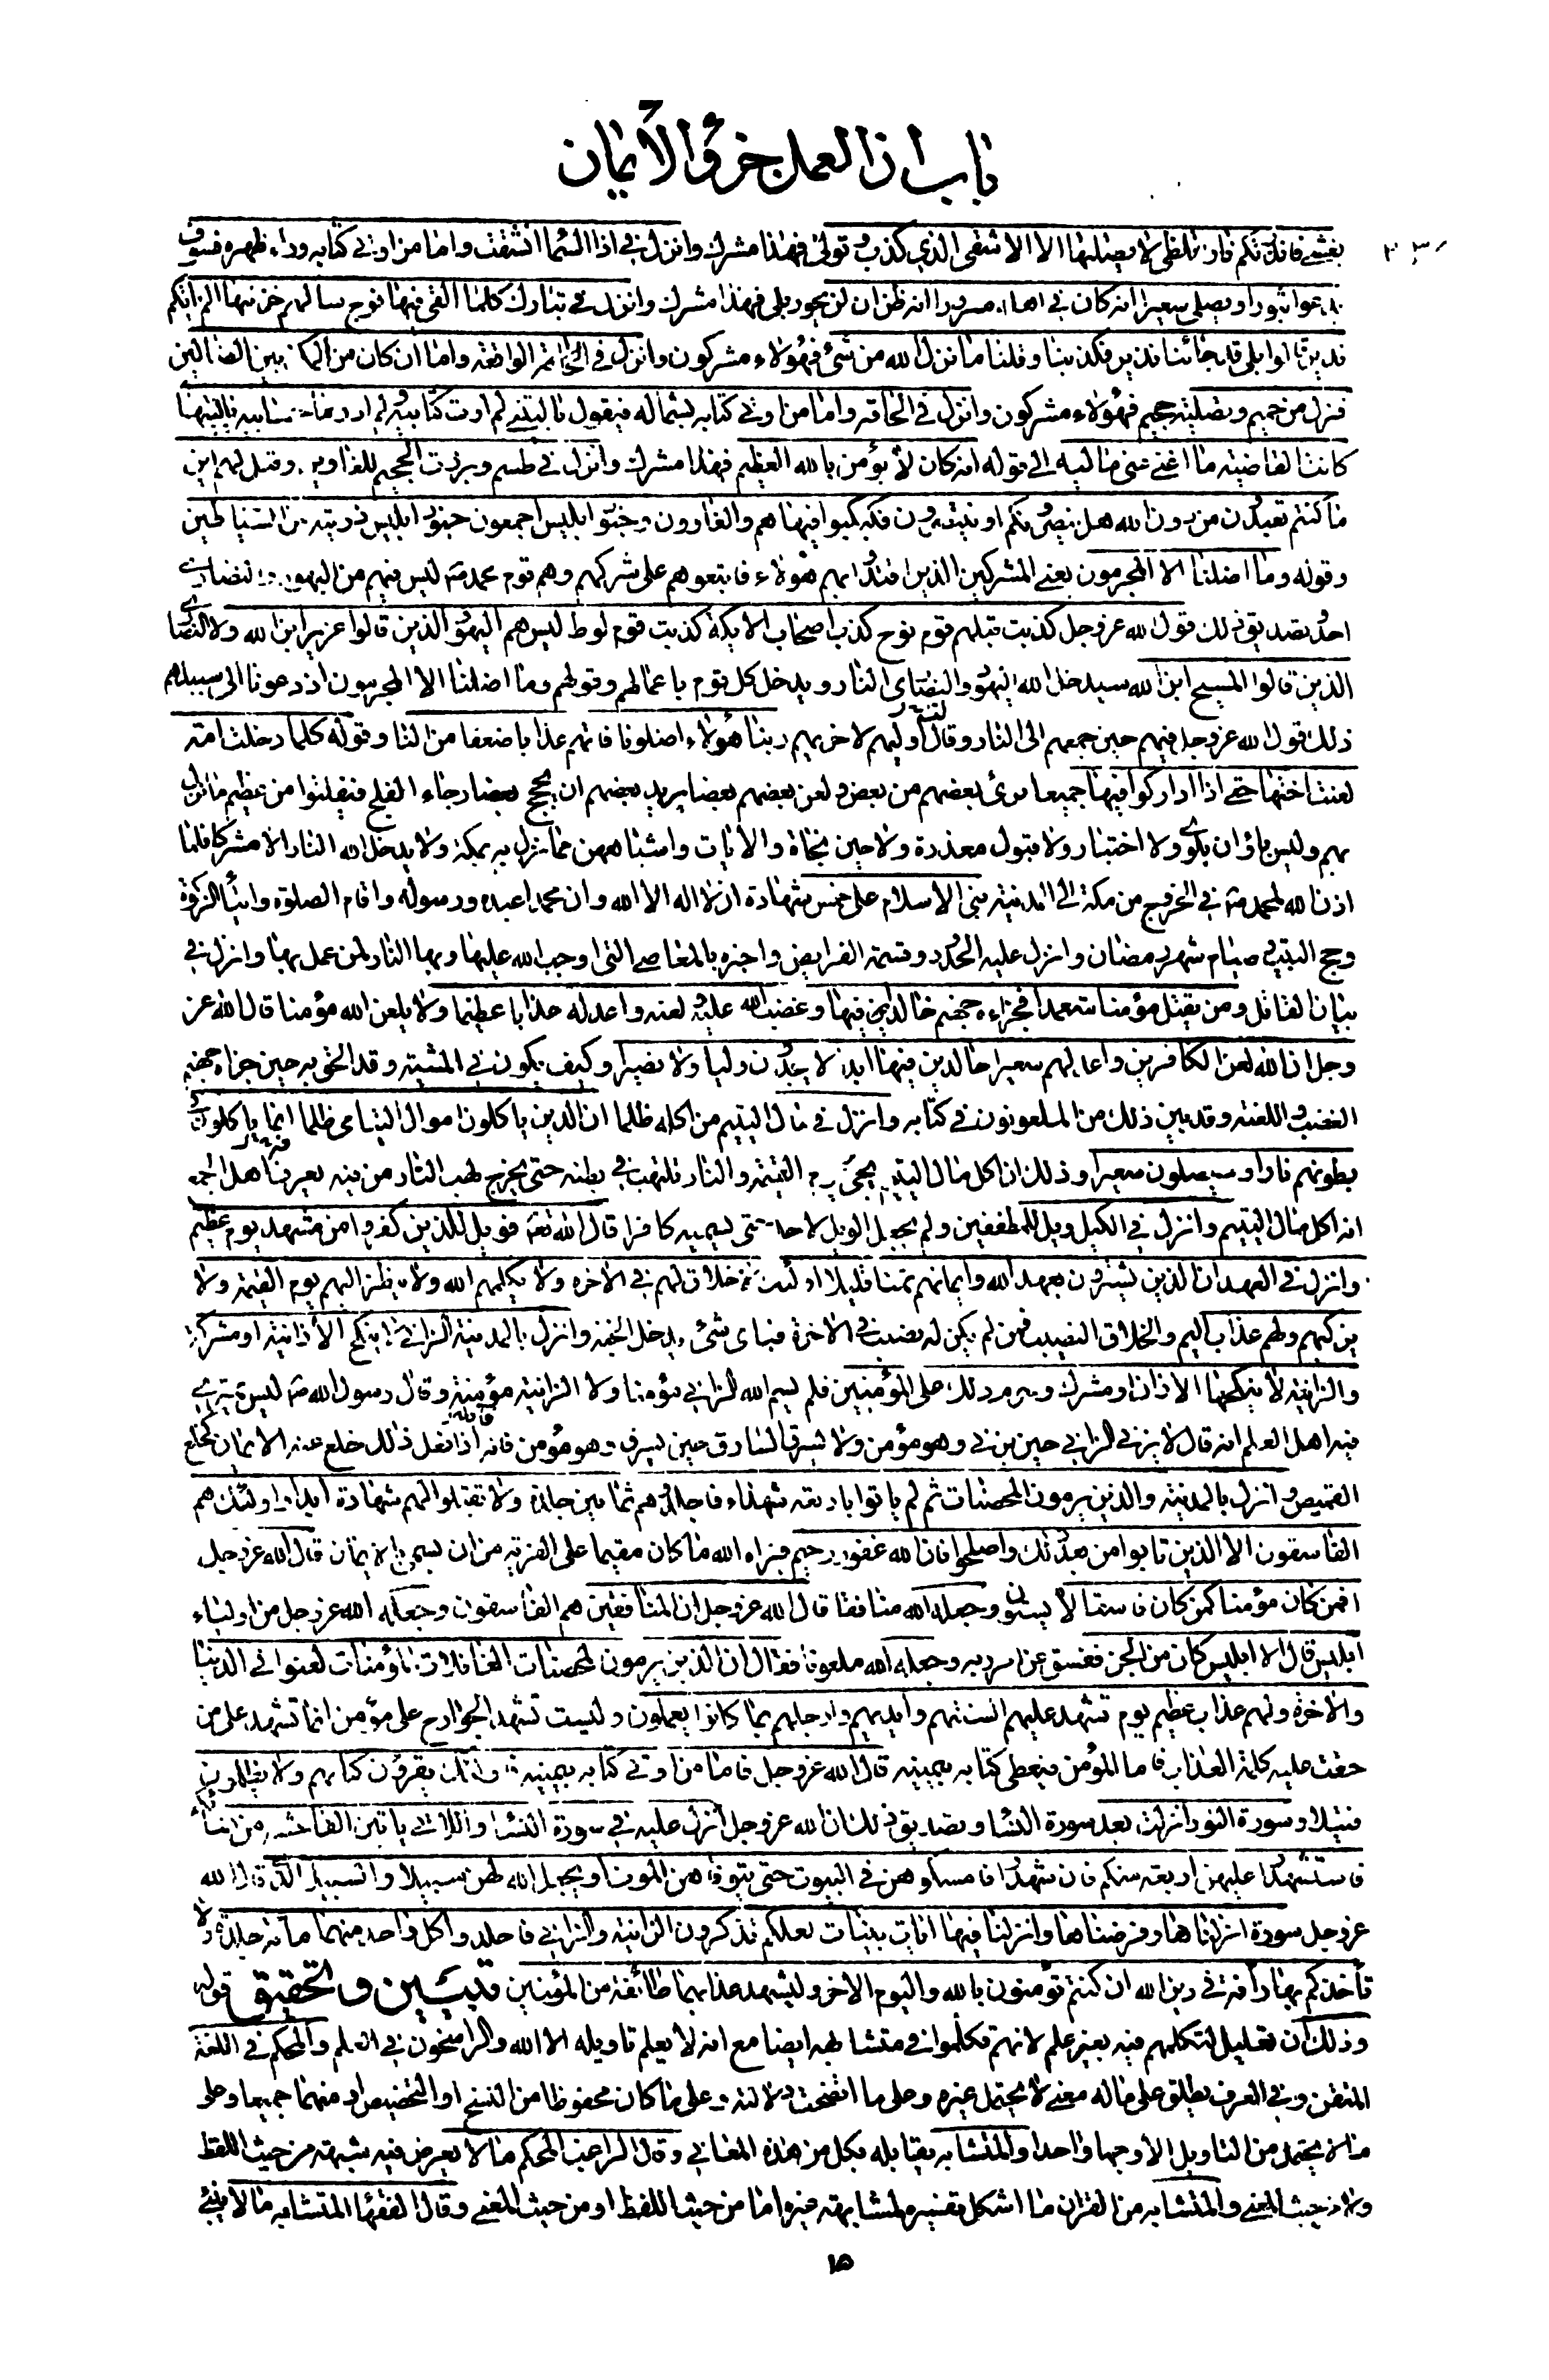 باب ان العمل جزؤ الايمان
يغشى فانذرتكم نارا تلظى لا يصليها الا الاشقى الذي كذب وتولى فهذا مشرك وانزل في اذا السماء انشقت واما من اوتي كتابه وراء ظهره فسوف
يدعوا ثبورا ويصلى سعيرا انه كان في اهله مسرورا انه ظن ان لن يحور بلى فهذا مشرك وانزل في تبارك كلما القي فيها فوج سالهم خزنتها الم ياتكم
نذير قالوا بلى قد جائنا نذير فكذبنا وقلنا ما نزل الله من شئ فهؤلاء مشركون وانزل في الواقعة واما ان كان من المكذبين الضالين
فنزل من حميم وتصلية جحيم فهؤلاء مشركون وانزل في الحاقة واما من اوتي كتابه بشماله فيقول يا ليتني لم اوت كتابيه ولم ادر ما حسابيه يا ليتها
كانت القاضية ما اغنى عني ماليه الى قوله انه كان لا يؤمن بالله العظيم فهذا مشرك وانزل في طسم وبرزت الجحيم للغاوين وقيل لهم اين
ما كنتم تعبدون من دون الله هل ينصرونكم او ينتصرون فكبكبوا فيها هم والغاوون وجنود ابليس اجمعون جنود ابليس ذريته من الشياطين
وقوله وما اضلنا الا المجرمون يعني المشركين الذين اقتدوا بهم هؤلاء فاتبعوهم على شركهم وهم قوم محمد ص ليس فيهم من اليهود والنصارى
احد وتصديق ذلك قول الله عز وجل كذبت قبلهم قوم نوح كذب اصحاب الايكة كذبت قوم لوط ليس هم اليهود الذين قالوا عزير ابن الله ولا النصارى
الذين قالوا المسيح ابن الله سيدخل الله اليهود والنصارى النار ويدخل كل قوم باعمالهم وقولهم وما اضلنا الا المجرمون اذ دعونا الى سبيلهم
ذلك قول الله عز وجل فيهم حين جمعهم الى النار وقالت اوليهم لاخريهم ربنا هؤلاء اضلونا فاتهم عذابا ضعفا من النار وقوله كلما دخلت امة
لعنت اختها حتى اذا اداركوا فيها جميعا برئ بعضهم من بعض ولعن بعضهم بعضا يريد بعضهم ان يحج بعضا رجاء الفلج فيفلتوا من عظيم ما نزل
بهم وليس باوان بلوى ولا اختبار ولا قبول معذرة ولا حين نجاة والايات واشباههن مما نزل به بمكة ولا يدخل الله النار الا مشركا فلما
اذن الله لمحمد ص في الخروج من مكة الى المدينة بني الاسلام على خمس شهادة ان لا اله الا الله وان محمدا عبده ورسوله واقام الصلوة وايتاء الزكوة
وحج البيت وصيام شهر رمضان وانزل عليه الحدود وقسمة الفرايض واخبره بالمعاصي التي اوجب الله عليها وبها النار لمن عمل بها وانزل في
بيان القاتل ومن يقتل مؤمنا متعمدا فجزاءه جهنم خالدا فيها وغضب الله عليه ولعنه واعد له عذابا عظيما ولا يلعن الله مؤمنا قال الله عز
وجل ان الله لعن الكافرين واعد لهم سعيرا خالدين فيها ابدا لا يجدون وليا ولا نصيرا وكيف يكون في المشية وقد الحق به حين جزاه جهنم
الغضب واللعنة وقد بين ذلك من الملعونون في كتابه وانزل في مال اليتيم من اكله ظلما ان الذين ياكلون اموال اليتامى ظلما انما ياكلون في
بطونهم نارا وسيصلون سعيرا وذلك ان اكل مال اليتيم يجئ يوم القيمة والنار تلتهب في بطنه حتى يخرج لهب النار من فيه يعرفه اهل الجمع
انه اكل مال اليتيم وانزل في الكيل ويل للمطففين ولم يجعل الويل لاحد حتى يسميه كافرا قال الله تعالى فويل للذين كفروا من مشهد يوم عظيم
وانزل في العهد ان الذين يشترون بعهد الله وايمانهم ثمنا قليلا اولئك لا خلاق لهم في الاخرة ولا يكلمهم الله ولا ينظر اليهم يوم القيمة ولا
يزكيهم ولهم عذاب اليم والخلاق النصيب فمن لم يكن له نصيب في الاخرة فباي شئ يدخل الجنة وانزل بالمدينة الزاني لا ينكح الا زانية او مشركة
والزانية لا ينكحها الا زان او مشرك وحرم ذلك على المؤمنين فلم يسم الله الزاني مؤمنا ولا الزانية مؤمنة وقال رسول الله ص ليس يمتري
فيه اهل العلم انه قال لا يزني الزاني حين يزني وهو مؤمن ولا يسرق السارق حين يسرق وهو مؤمن فانه اذا فعل ذلك خلع عنه الايمان كخلع
القميص وانزل بالمدينة والذين يرمون المحصنات ثم لم ياتوا باربعة شهداء فاجلدوهم ثمانين جلدة ولا تقبلوا لهم شهادة ابدا واولئك هم
الفاسقون الا الذين تابوا من بعد ذلك واصلحوا فان الله غفور رحيم فبراه الله ما كان مقيما على الفرية من ان يسمى بالايمان قال الله عز وجل
افمن كان مؤمنا كمن كان فاسقا لا يستون وجعله الله منافقا قال الله عز وجل ان المنافقين هم الفاسقون وجعله الله عز وجل من اولياء
ابليس قال الا ابليس كان من الجن ففسق عن امر ربه وجعله الله ملعونا فقال ان الذين يرمون المحصنات الغافلات المؤمنات لعنوا في الدنيا
والاخرة ولهم عذاب عظيم يوم تشهد عليهم السنتهم وايديهم وارجلهم بما كانوا يعملون وليست تشهد الجوارح على مؤمن انما تشهد على من
حقت عليه كلمة العذاب فاما المؤمن فيعطى كتابه بيمينه قال الله عز وجل فاما من اوتي كتابه بيمينه فاولئك يقرؤن كتابهم ولا يظلمون
فتيلا وسورة النور انزلت بعد سورة النساء وتصديق ذلك ان الله عز وجل انزل عليه في سورة النساء واللاتي ياتين الفاحشة من نسائكم
فاستشهدوا عليهن اربعة منكم فان شهدوا فامسكوهن في البيوت حتى يتوفاهن الموت او يجعل الله لهن سبيلا والسبيل الذي قال الله
عز وجل سورة انزلناها وفرضناها وانزلنا فيها ايات بينات لعلكم تذكرون الزانية والزاني فاجلدوا كل واحد منهما مائة جلدة ولا
تأخذكم بهما رأفة في دين الله ان كنتم تؤمنون بالله واليوم الاخر وليشهد عذابهما طائفة من المؤمنين تبيين وتحقيق قوله
وذلك ان تعليل لتكلمهم فيه بغير علم لانهم تكلموا في متشابهه ايضا مع انه لا يعلم تاويله الا الله والراسخون في العلم والمحكم في اللغة
المتقن وفي العرف يطلق على ما له معنى لا يحتمل غيره وعلى ما اتضحت دلالته وعلى ما كان محفوظا من النسخ او التخصيص او منهما جميعا وعلى
ما لا يحتمل من التاويل الا وجها واحدا والمتشابه يقابله بكل من هذه المعاني وقال الراغب المحكم ما لا يعرض فيه شبهة من حيث اللفظ
ولا من حيث المعنى والمتشابه من القران ما اشكل تفسيره لمشابهته غيره اما من حيث اللفظ او من حيث المعنى وقال الفقهاء المتشابه ما لا ينبئ
١٥